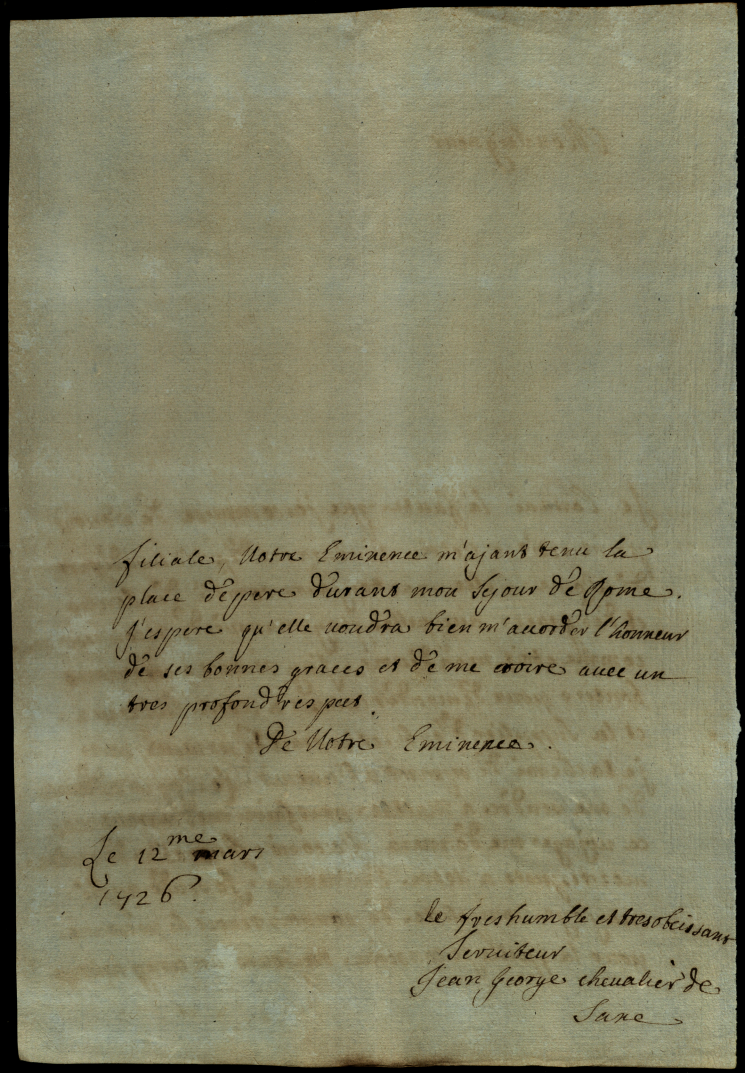 filiale, Votre Eminence m'ajant tenu la
place de pere durant mon Sejour de Rome.
j'espere qu'elle voudra bien m'accorder l'honneur
de ses bonnes graces et de me croire avec un
tres profond respect.
De Votre Eminence.
Le 12me mars
1726.
le treshumble et tresobeissant
Serviteur
Jean George chevalier de
Saxe